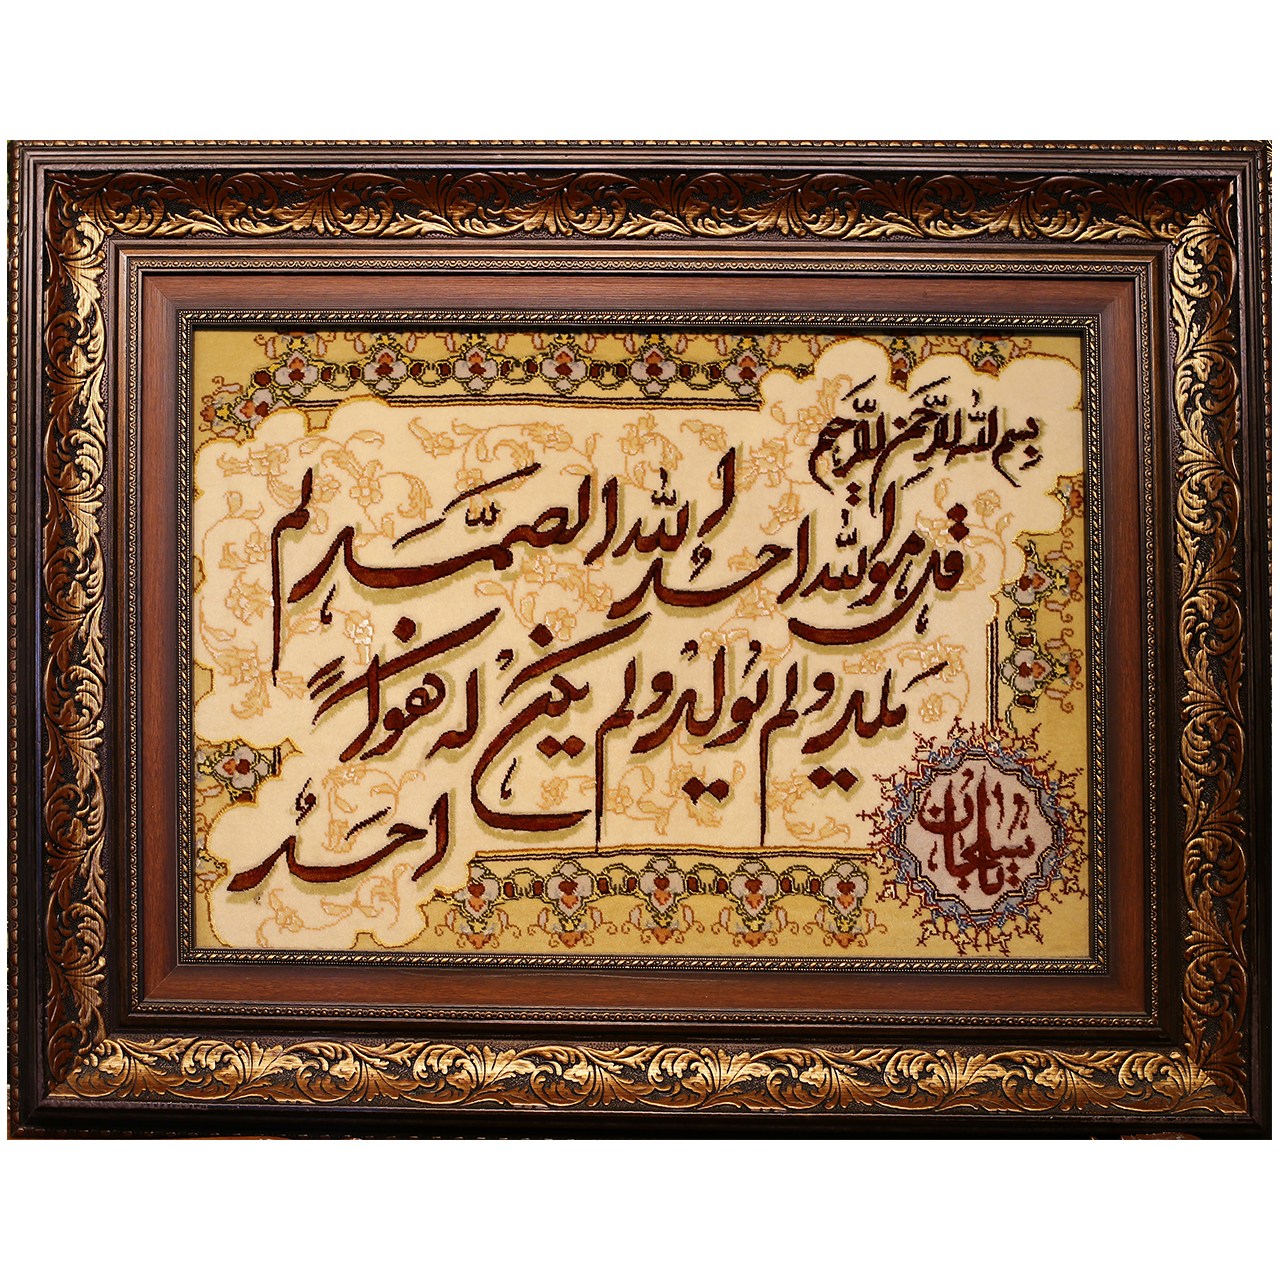 بسم الله الرحمن الرحیم
قل هو الله احد الله الصمد لم
یلد و لم یولد و لم یکن له کفواً
احدٌ